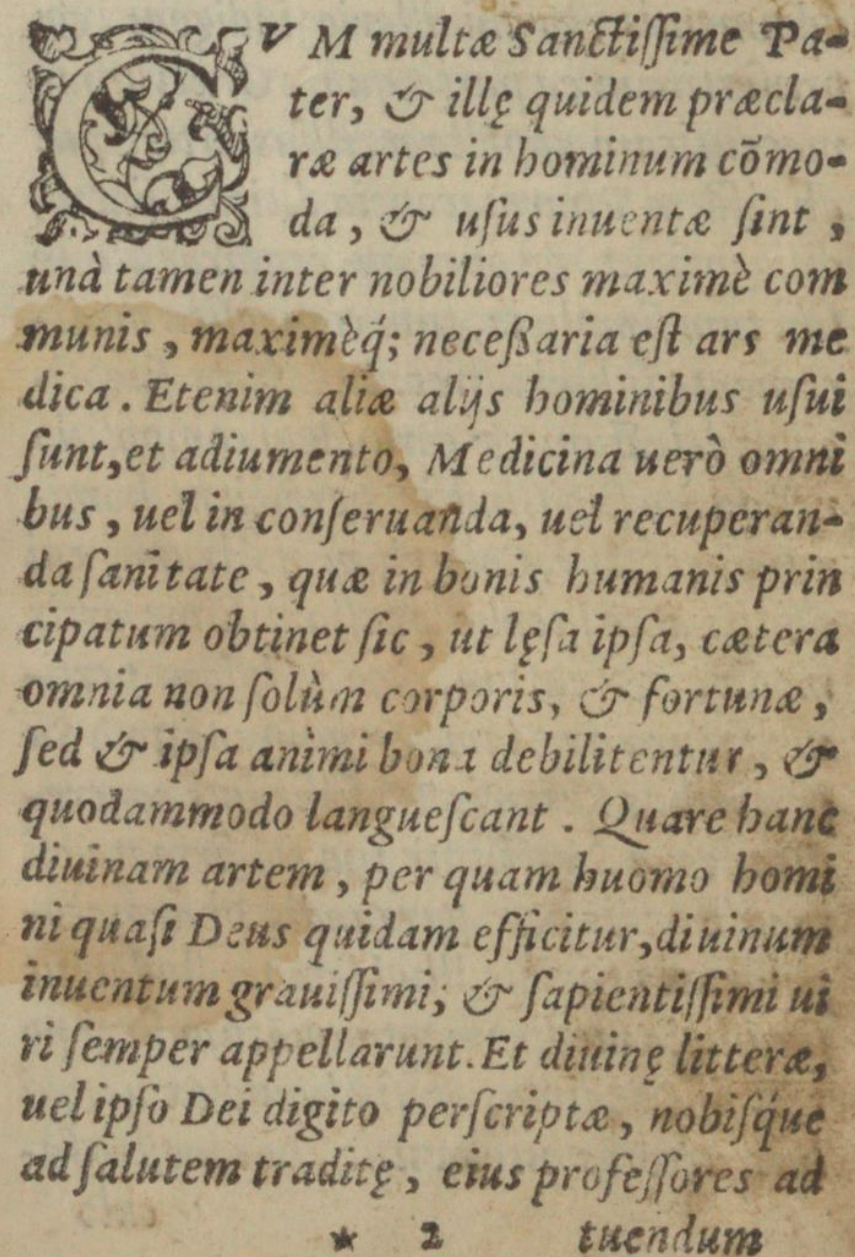 CVM multæ Sanctiſſime Pa-
ter, & illę quidem præcla-
ræ artes in hominum cōmo-
da, & uſus inuentæ ſint,
unà tamen inter nobiliores maximè com
munis, maximèq́; neceßaria eſt ars me
dica. Etenim aliæ alijs hominibus uſui
ſunt, et adiumento, Medicina uerò omni
bus, uel in conſeruanda, uel recuperan-
da ſanitate, quæ in bonis humanis prin
cipatum obtinet ſic, ut lęſa ipſa, cætera
omnia non ſolùm corporis, & fortunæ,
ſed & ipſa animi bona debilitentur, &
quodammodo langueſcant. Quare hanc
diuinam artem, per quam huomo homi
ni quaſi Deus quidam efficitur, diuinum
inuentum grauiſſimi; & ſapientiſſimi ui
ri ſemper appellarunt. Et diuinę litteræ,
uel ipſo Dei digito perſcriptæ, nobiſq́ue
ad ſalutem traditę, eius profeſſores ad
* 2 tuendum